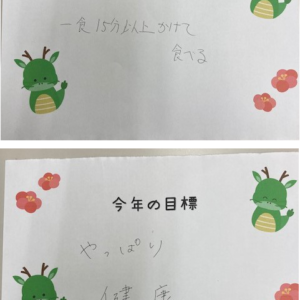 一食15分以上かけて
食べる
今年の目標
やっぱり
健康